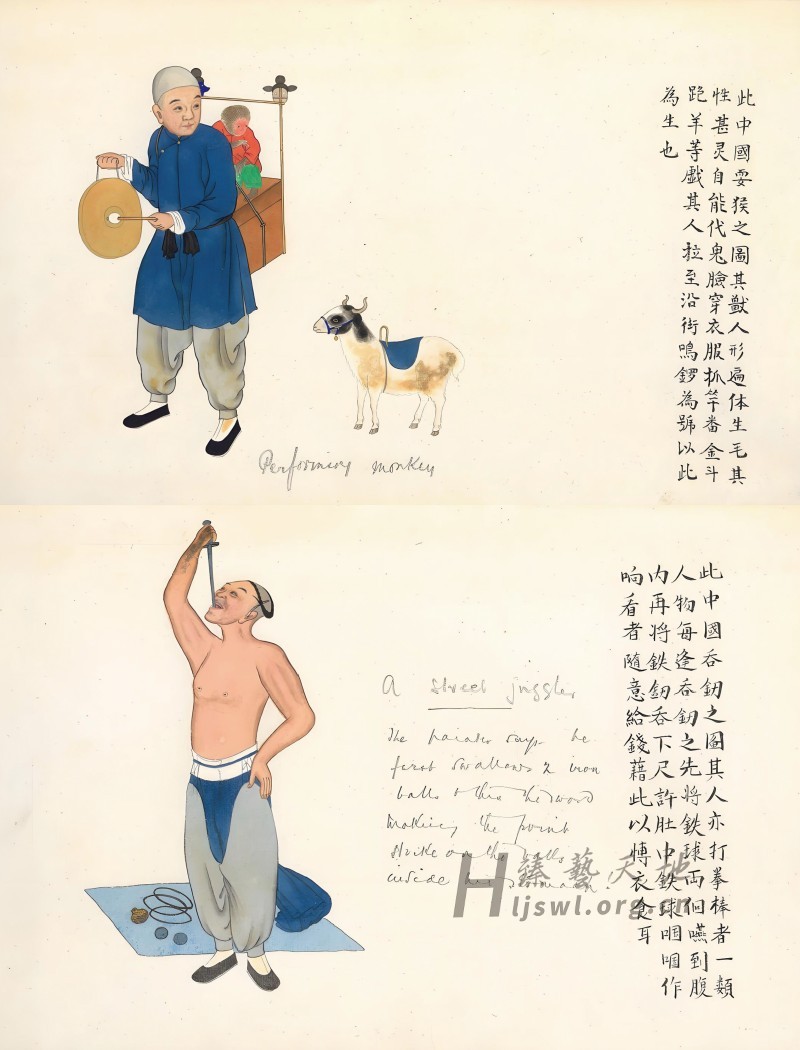 此中國耍猴之圖其獸人形遍体生毛其
性甚灵自能代鬼臉穿衣服抓竿番金斗
跑羊等戲其人拉至沿街鳴鑼為號以此
為生也
Performing monkey
此中國吞釖之圖其人亦打拳棒者一類
人物每逢吞釖之先將鉄球両個嚥到腹
內再將鉄釖吞下尺許肚中鉄球咽咽作
响看者隨意給錢藉此以愽衣食耳
A street juggler
The painter says he
first swallows 2 iron
balls & then the sword
making the point
strike on the balls
inside his stomach.
臻藝天地
Hljswl.org.cn